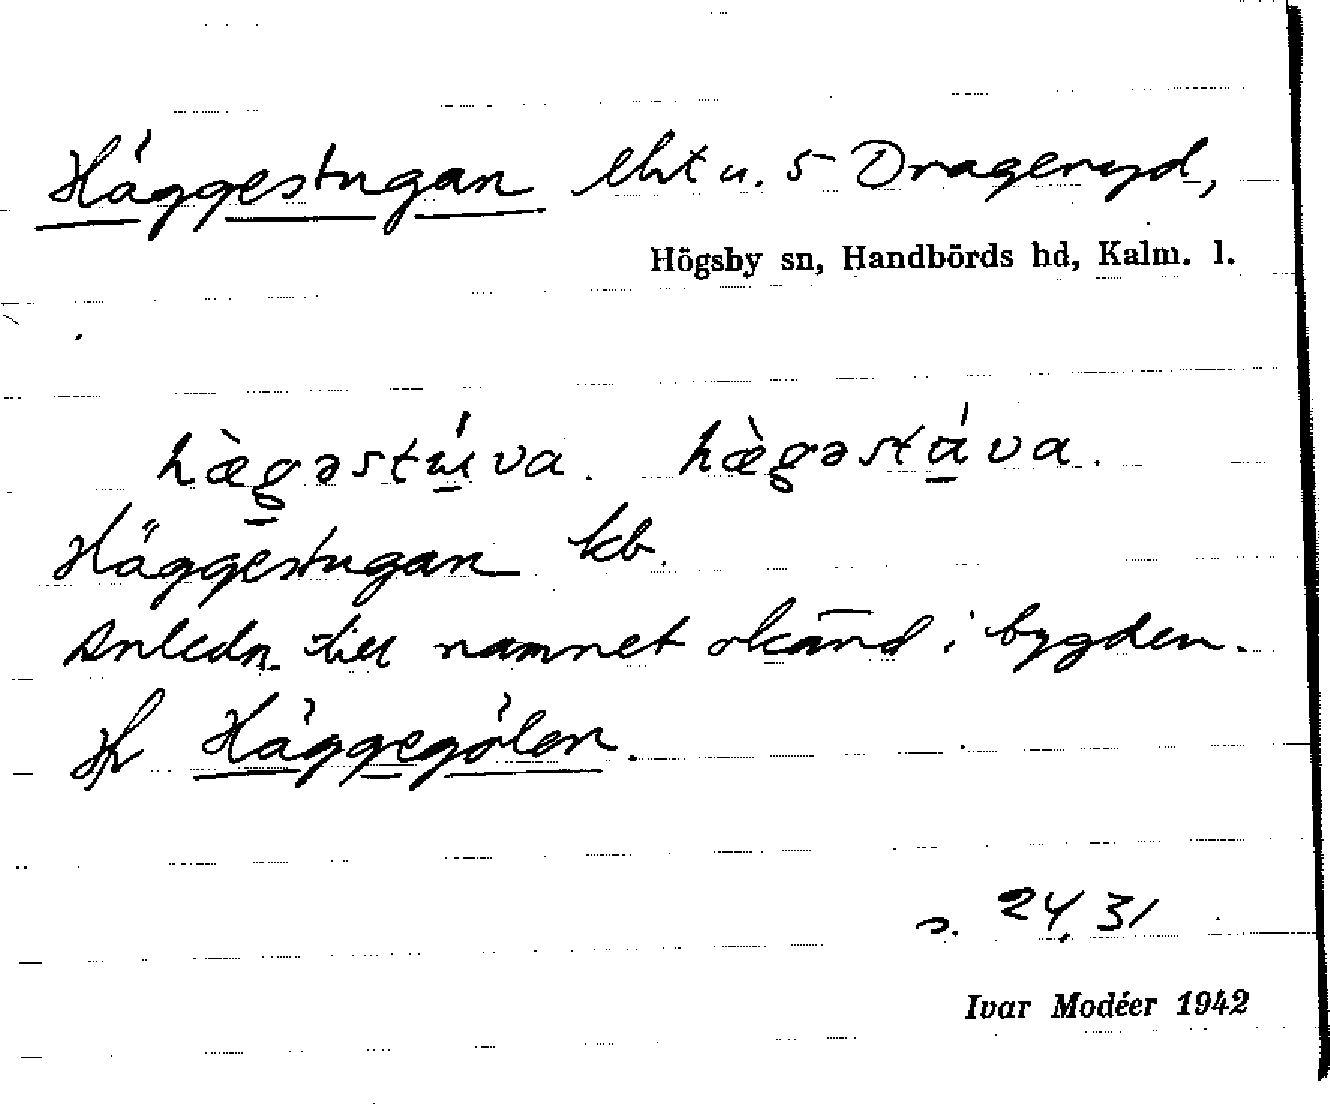 Häggestugan lht u. 5 Drageryd,
Högsby sn, Handbörds hd, Kalm. l.
hæ̀gəstúva. hæ̀gəstáva.
Häggestugan kb.
Anledn. till namnet okänd i bygden.
Jfr Häggegölen.
s. 24, 31
Ivar Modéer 1942